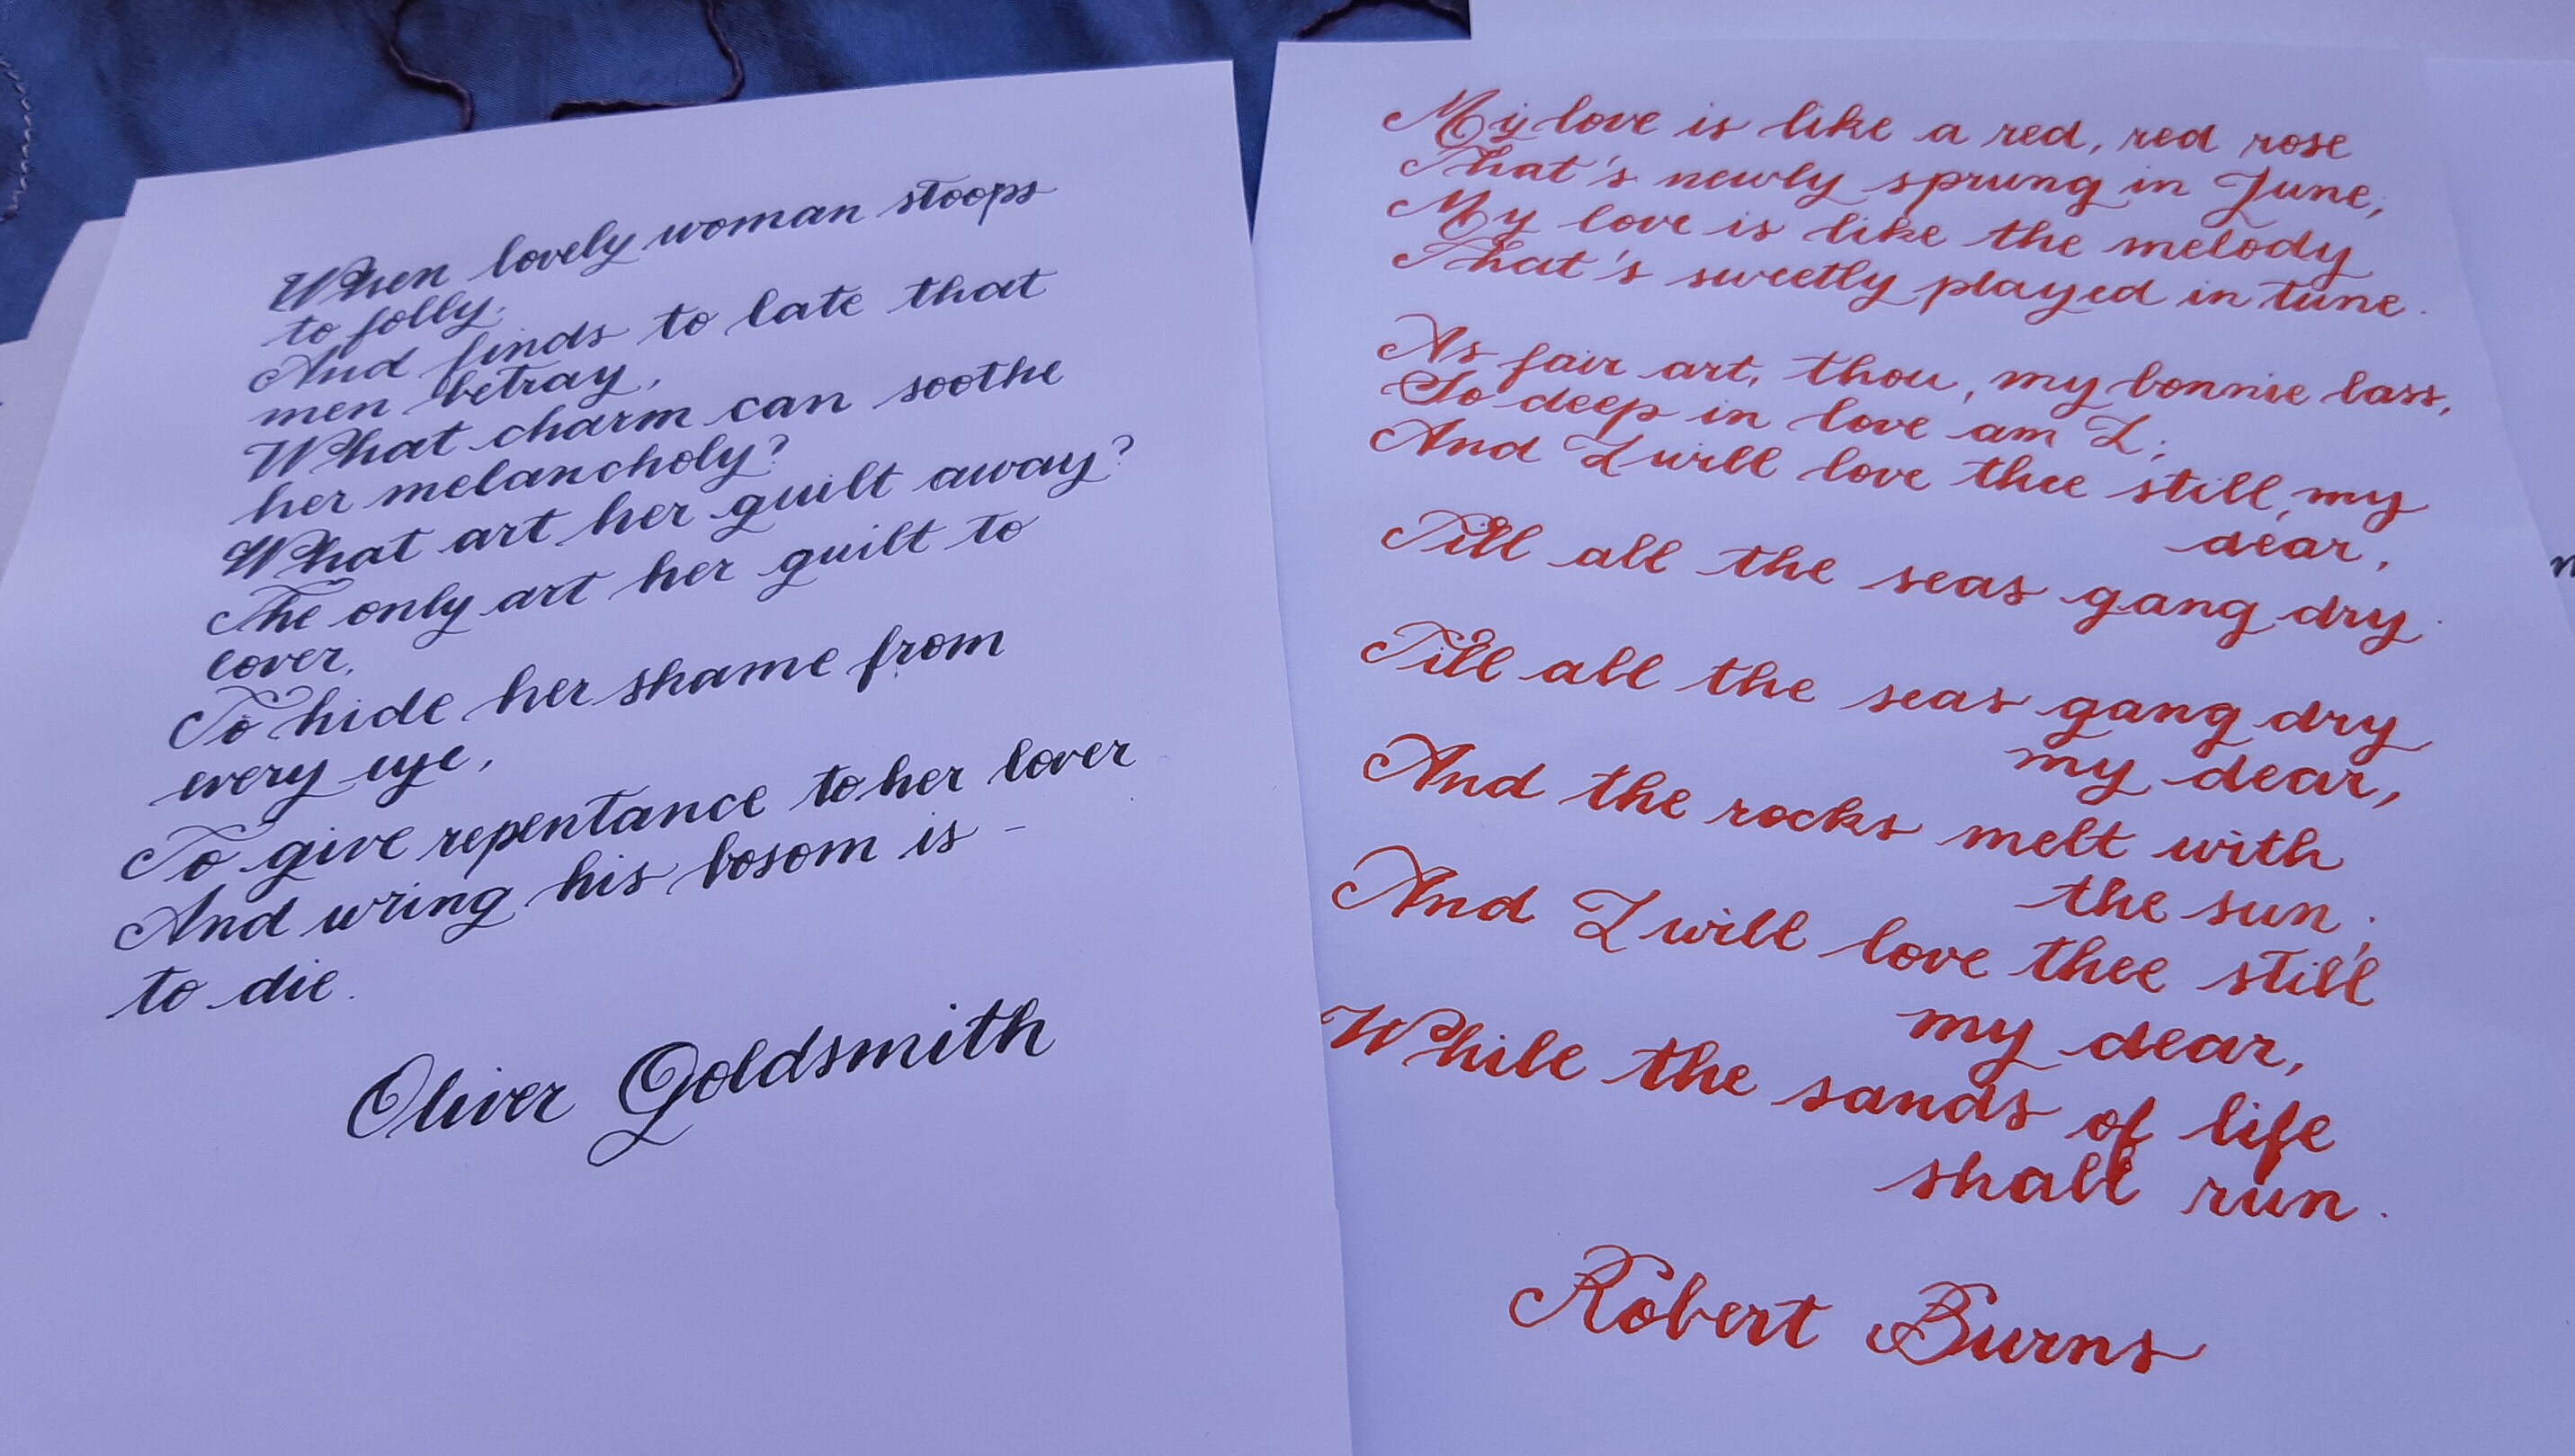 When lovely woman stoops
to folly,
And finds to late that
men betray,
What charm can soothe
her melancholy?
What art her guilt away?
The only art her guilt to
cover,
To hide her shame from
every eye,
To give repentance to her lover
And wring his bosom is -
to die.
Oliver Goldsmith
My love is like a red, red rose
That's newly sprung in June;
My love is like the melody
That's sweetly played in tune.
As fair art, thou, my bonnie lass,
So deep in love am I;
And I will love thee still, my
dear,
Till all the seas gang dry.
Till all the seas gang dry
my dear,
And the rocks melt with
the sun;
And I will love thee still
my dear,
While the sands of life
shall run.
Robert Burns